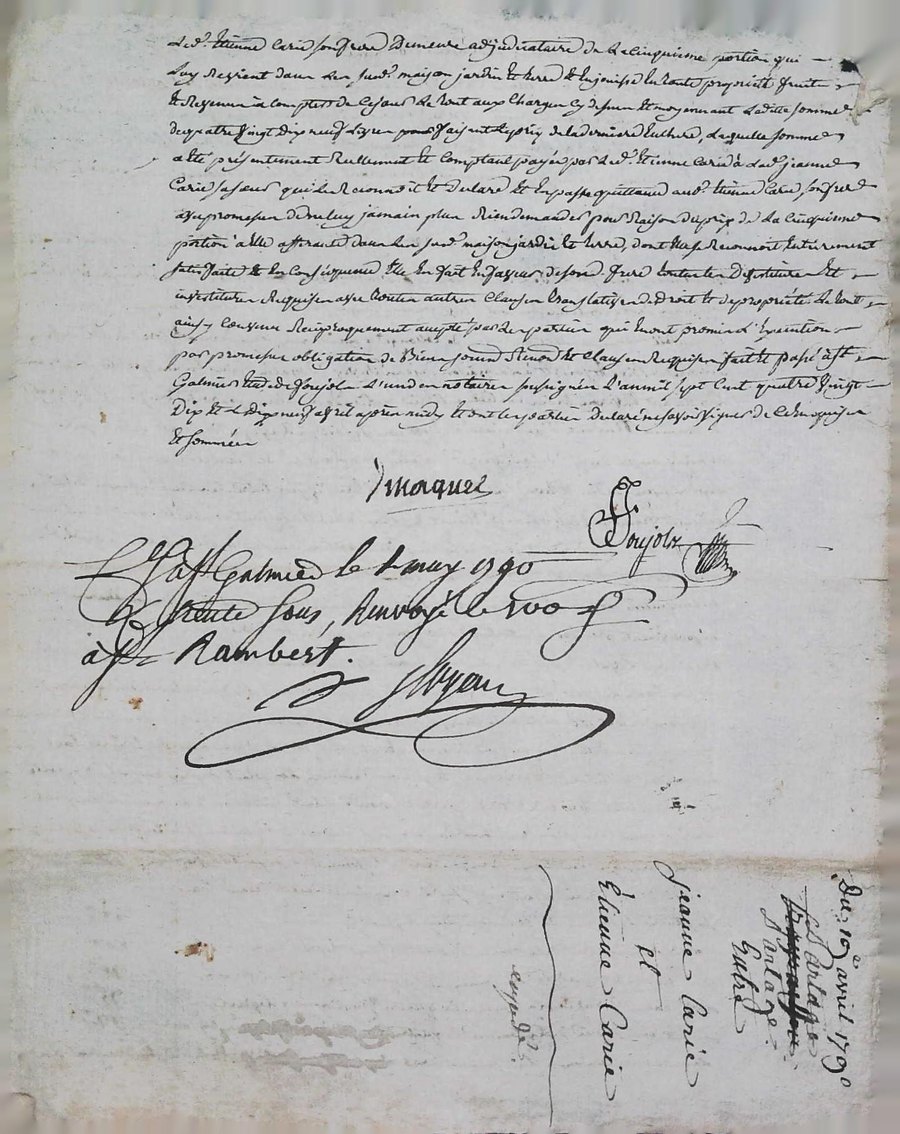 led.t Etienne Carie son frere demeure adjudicataire de la cinquieme portion qui
luy revient dans les susd.s maison jardin et terre et en jouisse en toute propriété fruits
et revenus à compter de ce jour le tout aux charges cy dessus et moyenant laditte somme
de quatre vingt dix neuf livres faisant le prix de la derniere enchere, laquelle somme
a été présentement reellement et comptant payée par led.t Etienne Carie à lad.e jeanne
Carie sa soeur qui le reconnoit et declare et en passe quittance aud.t Etienne Carie son frere
avec promesse de ne luy jamais plus rien demander pour raison du prix de la cinquieme
portion à elle afferante dans les susd.s maison jardin et terre, dont elle se reconnoit entierement
satisfaite et en conséquence elle en fait en faveur de sond. frere toutes les devestiture et
investiture requises avec toutes autres clauses translatives de droit et de propriété le tout
ainsy convenu reciproquement accepté par les parties qui l'ont promis d'execution
par promesse obligation de biens soumis renond et clauses requises fait et passé à St
Galmier etude de Poujolx l'un des notaires soussignés l'an mil sept cent quatre vingt
dix et le dix neuf avril après midy et ont les parties declaré ne savoir signer de ce enquises
et sommées
maquet
Poujolx
C.lé à St Galmier le 1 may 1790
trente sous, Renvoyé le
à St Rambert.
Du 19e avril 1790
Partage
D'antage
Entre
jeanne Carie
et
Etienne Carie